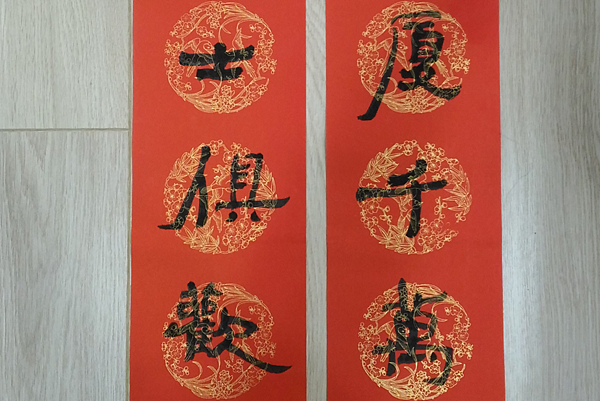 厦千萬
士俱歡